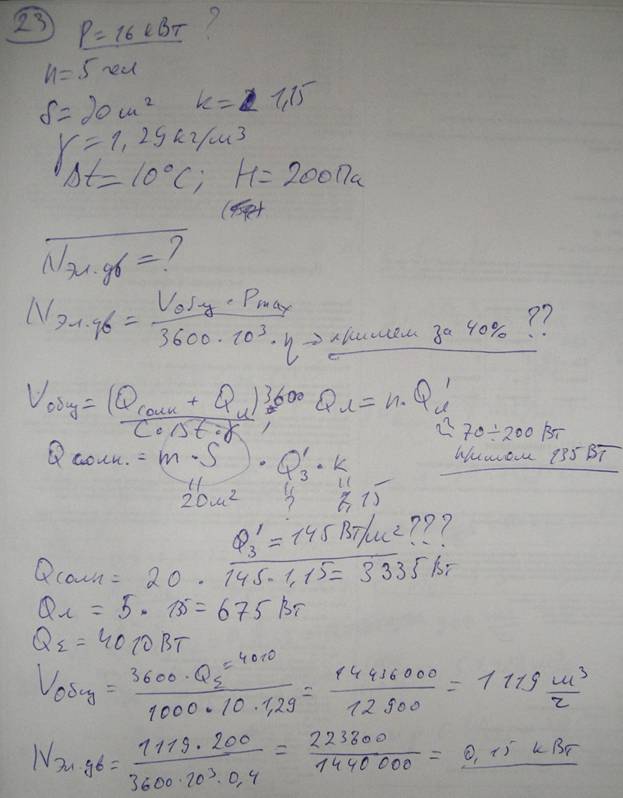 23
P = 16 кВт ?
n = 5 чел
S = 20 м² k = 1,15
γ = 1,29 кг/м³
Δt = 10°C; H = 200 Па
Nэл.дв = ?
Nэл.дв = Vобщ · Pmax / 3600 · 10³ · η → примем за 40% ??
Vобщ = (Qсолн + Qл) 3600 / C · Δt · γ , Qл = n · Qл'
≈ 70 ÷ 200 Вт
примем 135 Вт
Qсолн. = m · S · Q'з · k
20 м² ? 1,15
Q'з = 145 Вт/м² ???
Qсолн = 20 · 145 · 1,15 = 3335 Вт
Qл = 5 · 135 = 675 Вт
QΣ = 4010 Вт
Vобщ = 3600 · QΣ = 4010 / 1000 · 10 · 1,29 = 14436000 / 12900 = 1119 м³/ч
Nэл.дв = 1119 · 200 / 3600 · 10³ · 0,4 = 223800 / 1440000 = 0,15 кВт